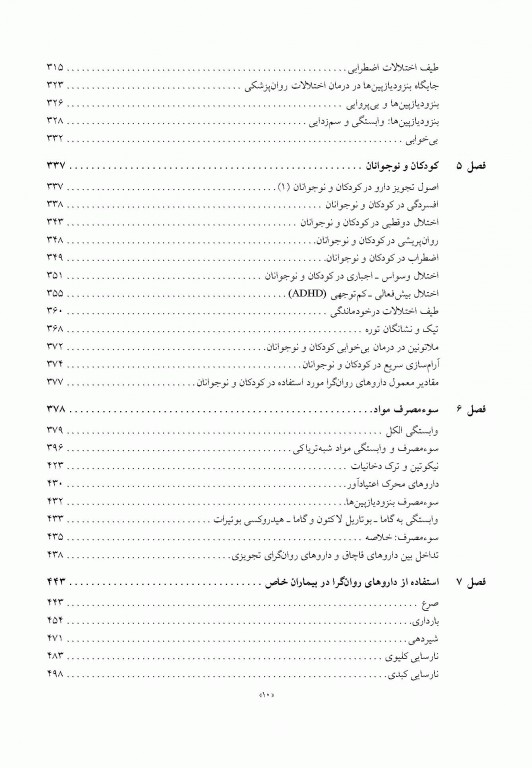 طیف اختلالات اضطرابی ۳۱۵
جایگاه بنزودیازپین‌ها در درمان اختلالات روان‌پزشکی ۳۲۳
بنزودیازپین‌ها و بی‌پروایی ۳۲۶
بنزودیازپین‌ها: وابستگی و سم‌زدایی ۳۲۸
بی‌خوابی ۳۳۲
فصل ۵ کودکان و نوجوانان ۳۳۷
اصول تجویز دارو در کودکان و نوجوانان (۱) ۳۳۷
افسردگی در کودکان و نوجوانان ۳۳۸
اختلال دوقطبی در کودکان و نوجوانان ۳۴۳
روان‌پریشی در کودکان و نوجوانان ۳۴۸
اضطراب در کودکان و نوجوانان ۳۴۹
اختلال وسواس ـ اجباری در کودکان و نوجوانان ۳۵۱
اختلال بیش‌فعالی ـ کم‌توجهی (ADHD) ۳۵۵
طیف اختلالات درخودماندگی ۳۶۰
تیک و نشانگان توره ۳۶۸
ملاتونین در درمان بی‌خوابی کودکان و نوجوانان ۳۷۲
آرام‌سازی سریع در کودکان و نوجوانان ۳۷۴
مقادیر معمول داروهای روان‌گرا مورد استفاده در کودکان و نوجوانان ۳۷۷
فصل ۶ سوءمصرف مواد ۳۷۸
وابستگی الکل ۳۷۹
سوءمصرف و وابستگی مواد شبه‌تریاکی ۳۹۶
نیکوتین و ترک دخانیات ۴۲۳
داروهای محرک اعتیادآور ۴۳۰
سوءمصرف بنزودیازپین‌ها ۴۳۲
وابستگی به گاما ـ بوتاریل لاکتون و گاما ـ هیدروکسی بوتیرات ۴۳۳
سوءمصرف: خلاصه ۴۳۵
تداخل بین داروهای قاچاق و داروهای روان‌گرای تجویزی ۴۳۸
فصل ۷ استفاده از داروهای روان‌گرا در بیماران خاص ۴۴۳
صرع ۴۴۳
بارداری ۴۵۴
شیردهی ۴۷۱
نارسایی کلیوی ۴۸۳
نارسایی کبدی ۴۹۸
«۱۰»